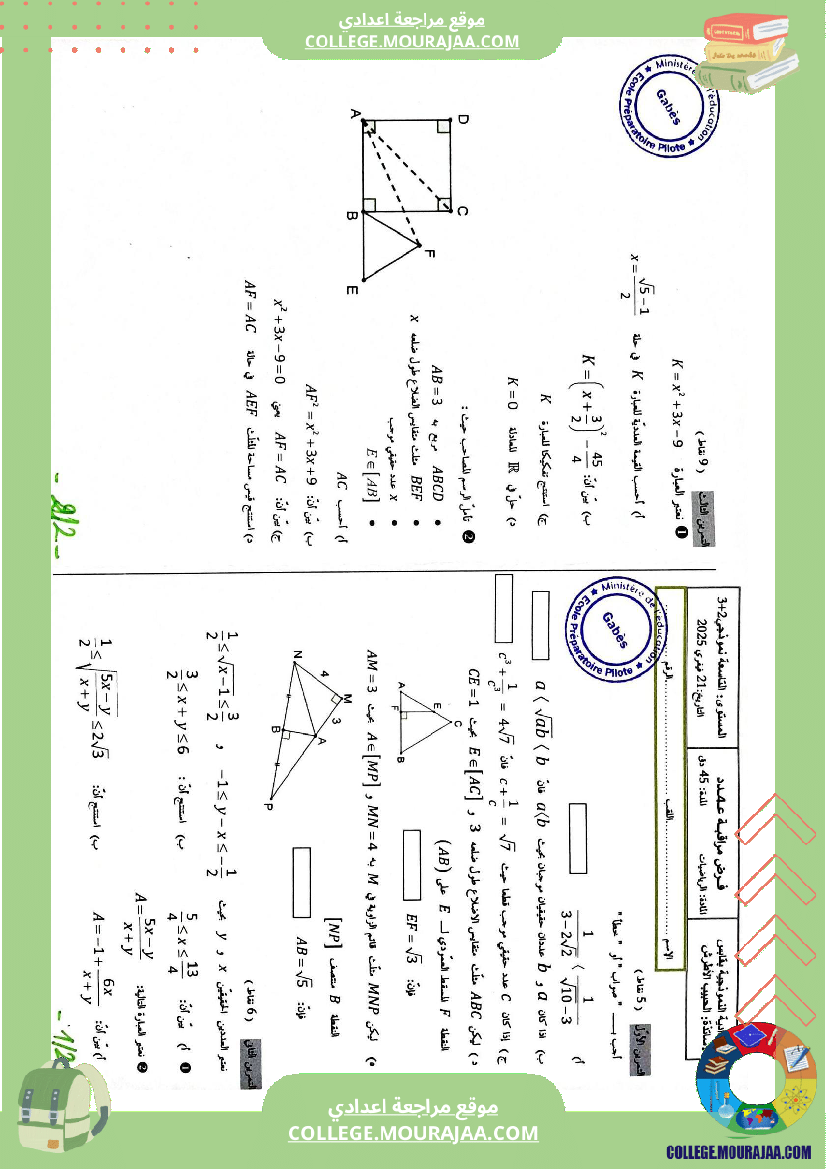 موقع مراجعة اعدادي
COLLEGE.MOURAJAA.COM
المستوى: التاسعة نموذجي2+3
التاريخ: 21 فيفري 2025
فـرض مراقبـة عــدد
المدة: 45 دق
المادة: الرياضيات
الأستاذة: الحبيب الأطرش
الاسم ........ اللقب ........ الرقم ........
Ministère de l'éducation
Gabès
Ecole Préparatoire Pilote
التمرين الأول ( 5 نقاط )
أجب بـ " صواب " أو " خطأ "
أ) 1/(3−2√2) ⟨ 1/(√10−3)
ب) اذا كان a و b عددان حقيقيان موجبان بحيث a⟨b فانّ a ⟨ √ab ⟨ b
ج) إذا كان c عدد حقيقي موجب قطعا حيث c + 1/c = √7 فانّ c³ + 1/c³ = 4√7
د) ليكن ABC مثلث متقايس الاضلاع طول ضلعه 3 و E∈[AC] بحيث CE=1
النقطة F المسقط العمودي لـ E على (AB)
فإنّ: EF=√3
C
E
A
F
B
ه) ليكن MNP مثلث قائم الزاوية في M به MN=4 و A∈[MP] بحيث AM=3
النقطة B منتصف [NP]
فإنّ: AB=√5
N
4
M
3
A
B
P
التمرين الثاني ( 6 نقاط )
نعتبر العددين الحقيقيين x و y بحيث −1≤ y−x ≤ −1/2 و 1/2 ≤ √x−1 ≤ 3/2
❶ أ) بيّن أنّ: 5/4 ≤ x ≤ 13/4
ب) استنتج أنّ: 3/2 ≤ x+y ≤ 6
❷ نعتبر العبارة التالية: A = (5x−y)/(x+y)
أ) بيّن أنّ: A = −1 + 6x/(x+y)
ب) استنتج أنّ: 1/2 ≤ √((5x−y)/(x+y)) ≤ 2√3
- 1/2
التمرين الثالث ( 9 نقاط )
❶ نعتبر العبارة K = x²+3x−9
أ) أحسب القيمة العددية للعبارة K في حالة x = (√5−1)/2
ب) بيّن أنّ: K = (x+3/2)² − 45/4
ج) استنتج تفكيكا للعبارة K
د) حلّ في ℝ المعادلة K=0
❷ تأمل الرسم المصاحب حيث :
• ABCD مربع به AB=3
• BEF مثلث متقايس الضلاع طول ضلعه x
• x عدد حقيقي موجب
• E∈[AB)
أ) أحسب AC
ب) بيّن أنّ: AF² = x²+3x+9
ج) بيّن أنّ: AF=AC يعني x²+3x−9=0
د) استنتج قيس مساحة المثلّث AEF في حالة AF=AC
D
C
F
A
B
E
Ministère de l'éducation
Gabès
Ecole Préparatoire Pilote
- 2/2 -
موقع مراجعة اعدادي
COLLEGE.MOURAJAA.COM
COLLEGE.MOURAJAA.COM